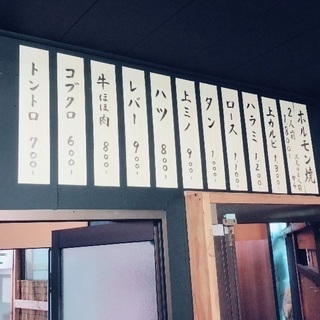 ホルモン焼
2人前
上カルビ 1300
ハラミ 1200
ロース 1100
タン
上ミノ 900-
ハツ 800-
レバー 900-
牛ほほ肉 800-
コブクロ 600-
トントロ 700-